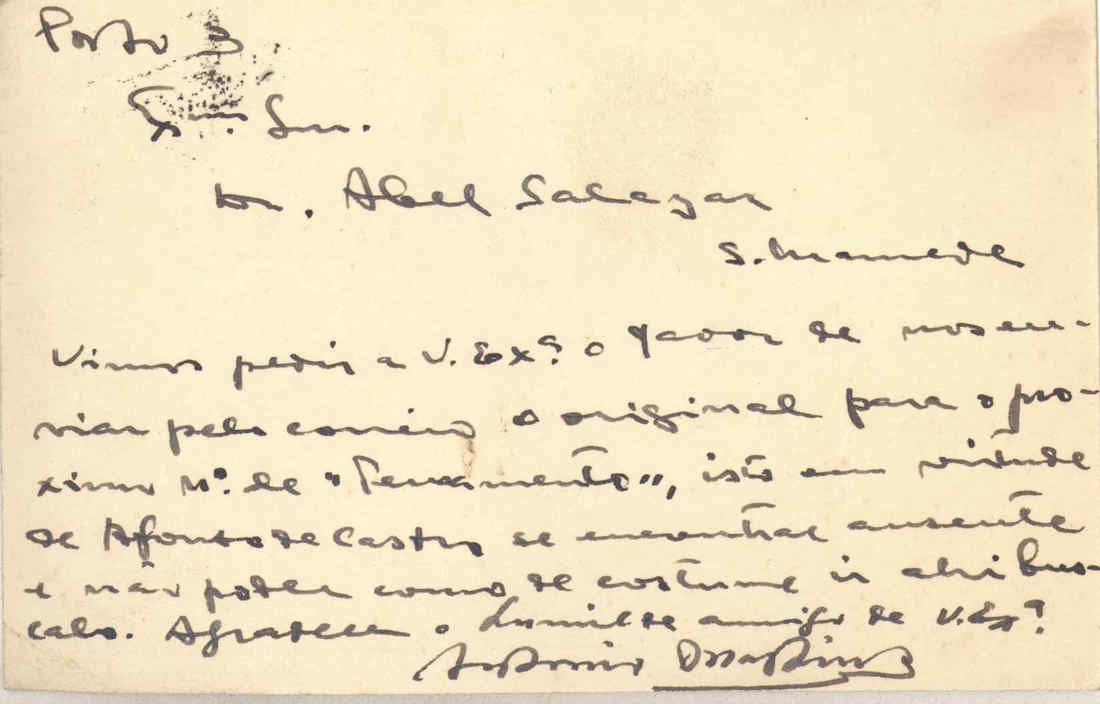 Porto 3.
Exmo. Snr.
Dr. Abel Salazar
S. Mamede
Vimos pedir a V. Exª. o favor de nos en-
viar pelo correio o original para o pro-
ximo nº. de "Pensamento", isto em virtude
de Afonso de Castro se encontrar ausente
e não poder como de costume ir ahi bus-
calo. Agradece o humilde amigo de V. Exª.
Antonio